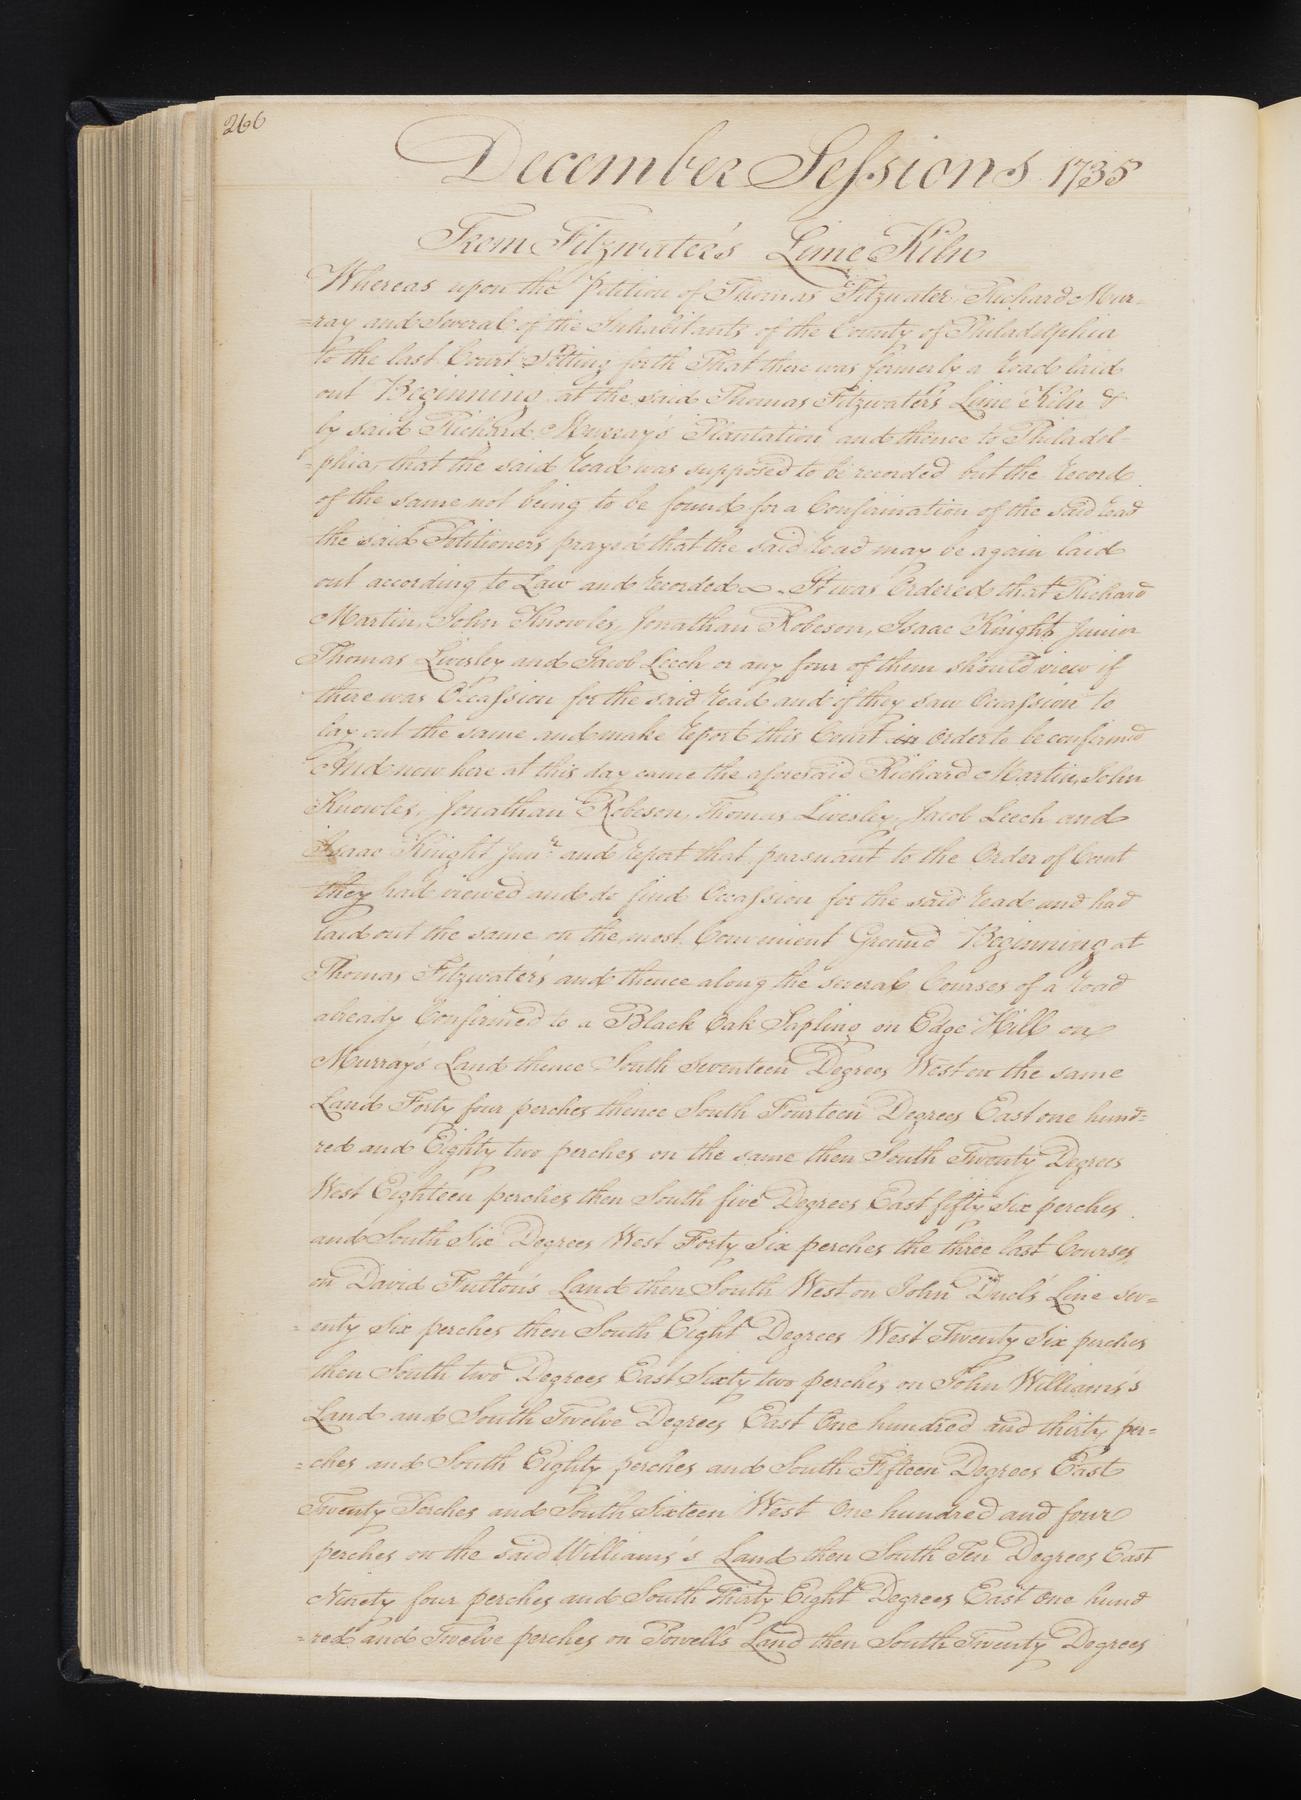 266
December Sessions 1735
From Fitzwater's Lime Kiln
Whereas upon the Petition of Thomas Fitzwater, Richard Mur-
=ray and Several of the Inhabitants of the County of Philadelphia
to the last Court Setting forth That there was formerly a road laid
out Beginning at the said Thomas Fitzwater's Lime Kiln &
by said Richard Murray's Plantation and thence to Philadel-
=phia, that the said road was supposed to be recorded but the record
of the same not being to be found for a Confirmation of the said road
the said Petitioners prayed that the said road may be again laid
out according to Law and recorded It was Ordered that Richard
Martin, John Knowles, Jonathan Robeson, Isaac Knight Junior
Thomas Livesley and Jacob Leech or any four of them should view if
there was Occassion for the said road and if they saw Occassion to
lay out the same and make report this Court in order to be confirmed
And now here at this day came the aforesaid Richard Martin, John
Knowles, Jonathan Robeson, Thomas Livesley, Jacob Leech and
Isaac Knight Junr. and report that pursuant to the Order of Court
they had viewed and do find Occassion for the said road and had
laid out the same on the most Convenient Ground Beginning at
Thomas Fitzwater's and thence along the several Courses of a road
already Confirmed to a Black Oak Sapling on Edge Hill on
Murray's Land thence South Seventeen Degrees West on the same
Land Forty four perches thence South Fourteen Degrees East one hund=
red and Eighty two perches on the same then South Twenty Degrees
West Eighteen perches then South five Degrees East fifty Six perches
and South Six Degrees West Forty Six perches the three last Courses
on David Fulton's Land then South West on John Duel's Line sev=
=enty Six perches then South Eight Degrees West Twenty Six perches
then South two Degrees East Sixty two perches on John Williams's
Land and South Twelve Degrees East One hundred and thirty per=
=ches and South Eighty perches and South Fifteen Degrees East
Twenty Perches and South Sixteen West One hundred and four
perches on the said Williams's Land then South Ten Degrees East
Ninety four perches and South Thirty Eight Degrees East One hund
=red and Twelve perches on Powell's Land then South Twenty Degrees